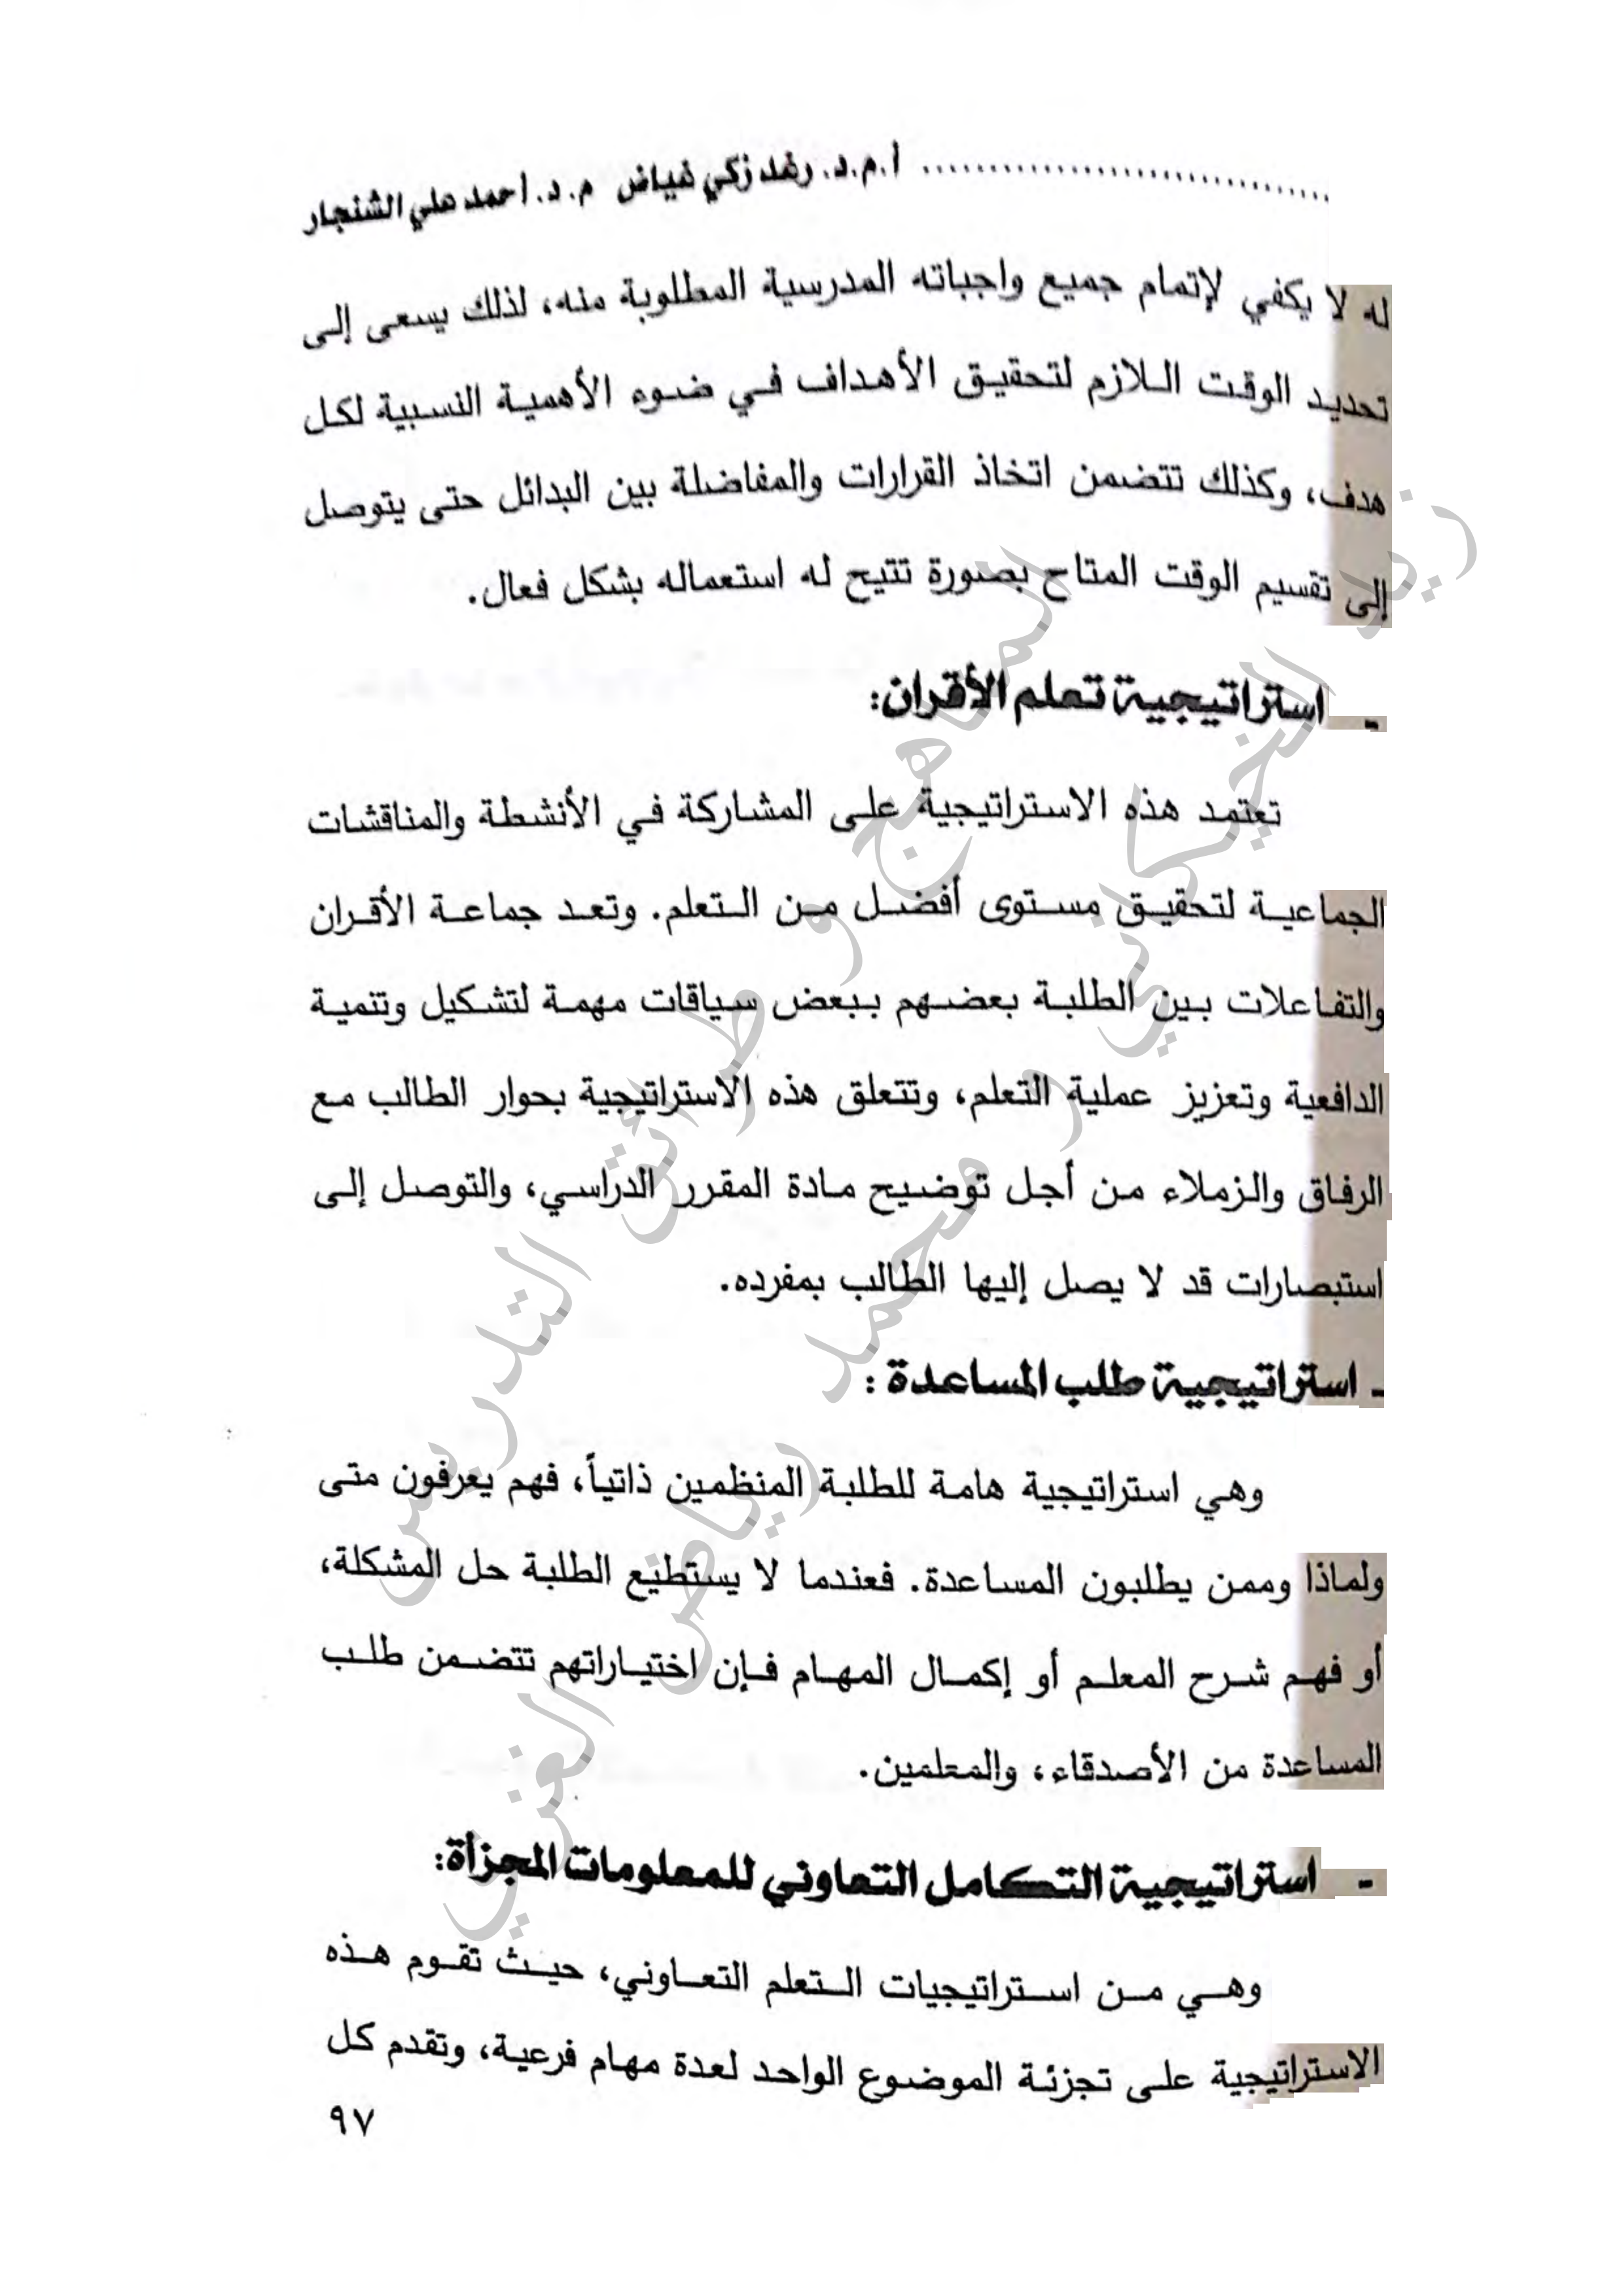 أ.م.د. رغد زكي غياض م.د. احمد علي الشنجار
له لا يكفي لإتمام جميع واجباته المدرسية المطلوبة منه، لذلك يسعى إلى
تحديد الوقت اللازم لتحقيق الأهداف في ضوء الأهمية النسبية لكل
هدف، وكذلك تتضمن اتخاذ القرارات والمفاضلة بين البدائل حتى يتوصل
إلى تقسيم الوقت المتاح بصورة تتيح له استعماله بشكل فعال.
- استراتيجية تعلم الأقران:
تعتمد هذه الاستراتيجية على المشاركة في الأنشطة والمناقشات
الجماعية لتحقيق مستوى أفضل من التعلم. وتعد جماعة الأقران
والتفاعلات بين الطلبة بعضهم ببعض سياقات مهمة لتشكيل وتنمية
الدافعية وتعزيز عملية التعلم، وتتعلق هذه الاستراتيجية بحوار الطالب مع
الرفاق والزملاء من أجل توضيح مادة المقرر الدراسي، والتوصل إلى
استبصارات قد لا يصل إليها الطالب بمفرده.
- استراتيجية طلب المساعدة :
وهي استراتيجية هامة للطلبة المنظمين ذاتياً، فهم يعرفون متى
ولماذا وممن يطلبون المساعدة. فعندما لا يستطيع الطلبة حل المشكلة،
أو فهم شرح المعلم أو إكمال المهام فإن اختياراتهم تتضمن طلب
المساعدة من الأصدقاء، والمعلمين.
- استراتيجية التكامل التعاوني للمعلومات المجزأة:
وهي من استراتيجيات التعلم التعاوني، حيث تقوم هذه
الاستراتيجية على تجزئة الموضوع الواحد لعدة مهام فرعية، وتقدم كل
٩٧
المناهج و طرائق التدريس
زيد الخيكاني و محمد رياض الغزي